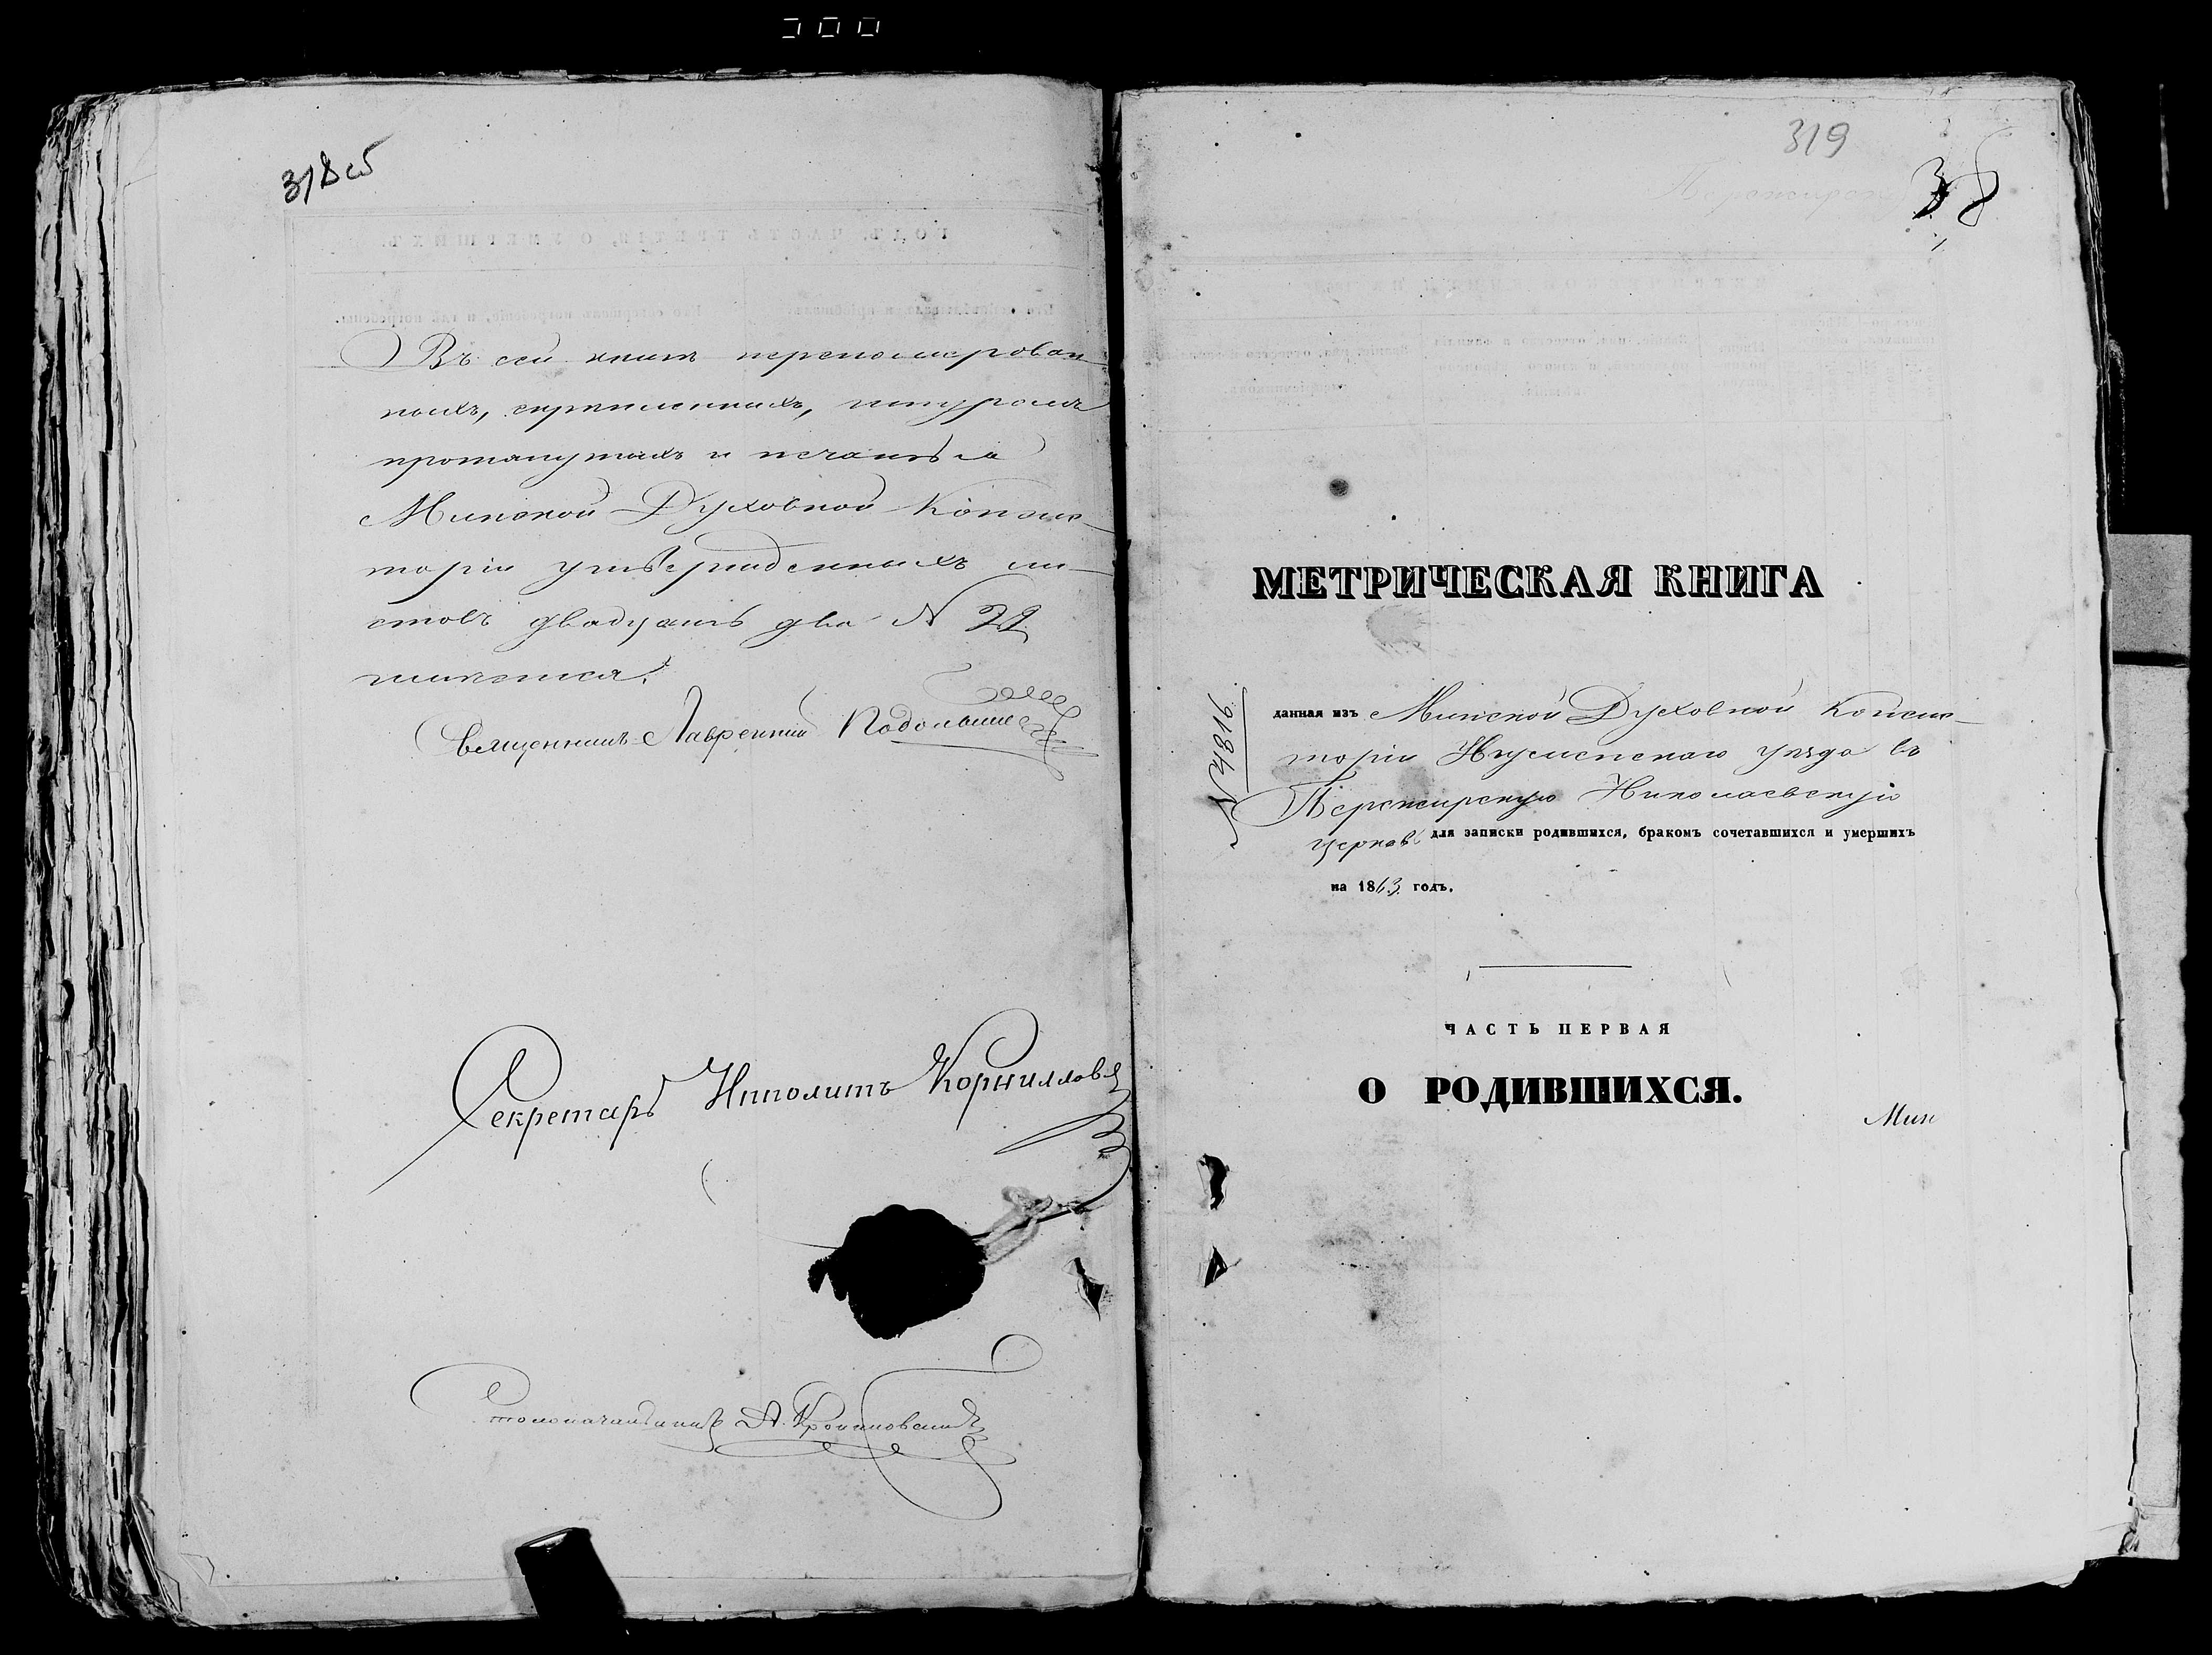 318 об
Въ сей книгѣ перенумерован-
ныхъ, скрѣпленныхъ, шнуромъ
протянутыхъ и печатью
Минской Духовной Консис-
торіи утвержденныхъ ли-
стовъ двадцать два № 22
Священникъ Лаврентій
Секретарь Ипполитъ Корниллов
Столоначальникъ А.
319
38
МЕТРИЧЕСКАЯ КНИГА
№ 4816
данная изъ Минской Духовной Консис-
торіи Игуменскаго уѣзда въ
Пережирскую Николаевскую
церковь для записки родившихся, бракомъ сочетавшихся и умершихъ
на 1863 годъ.
ЧАСТЬ ПЕРВАЯ
О РОДИВШИХСЯ.
Мин